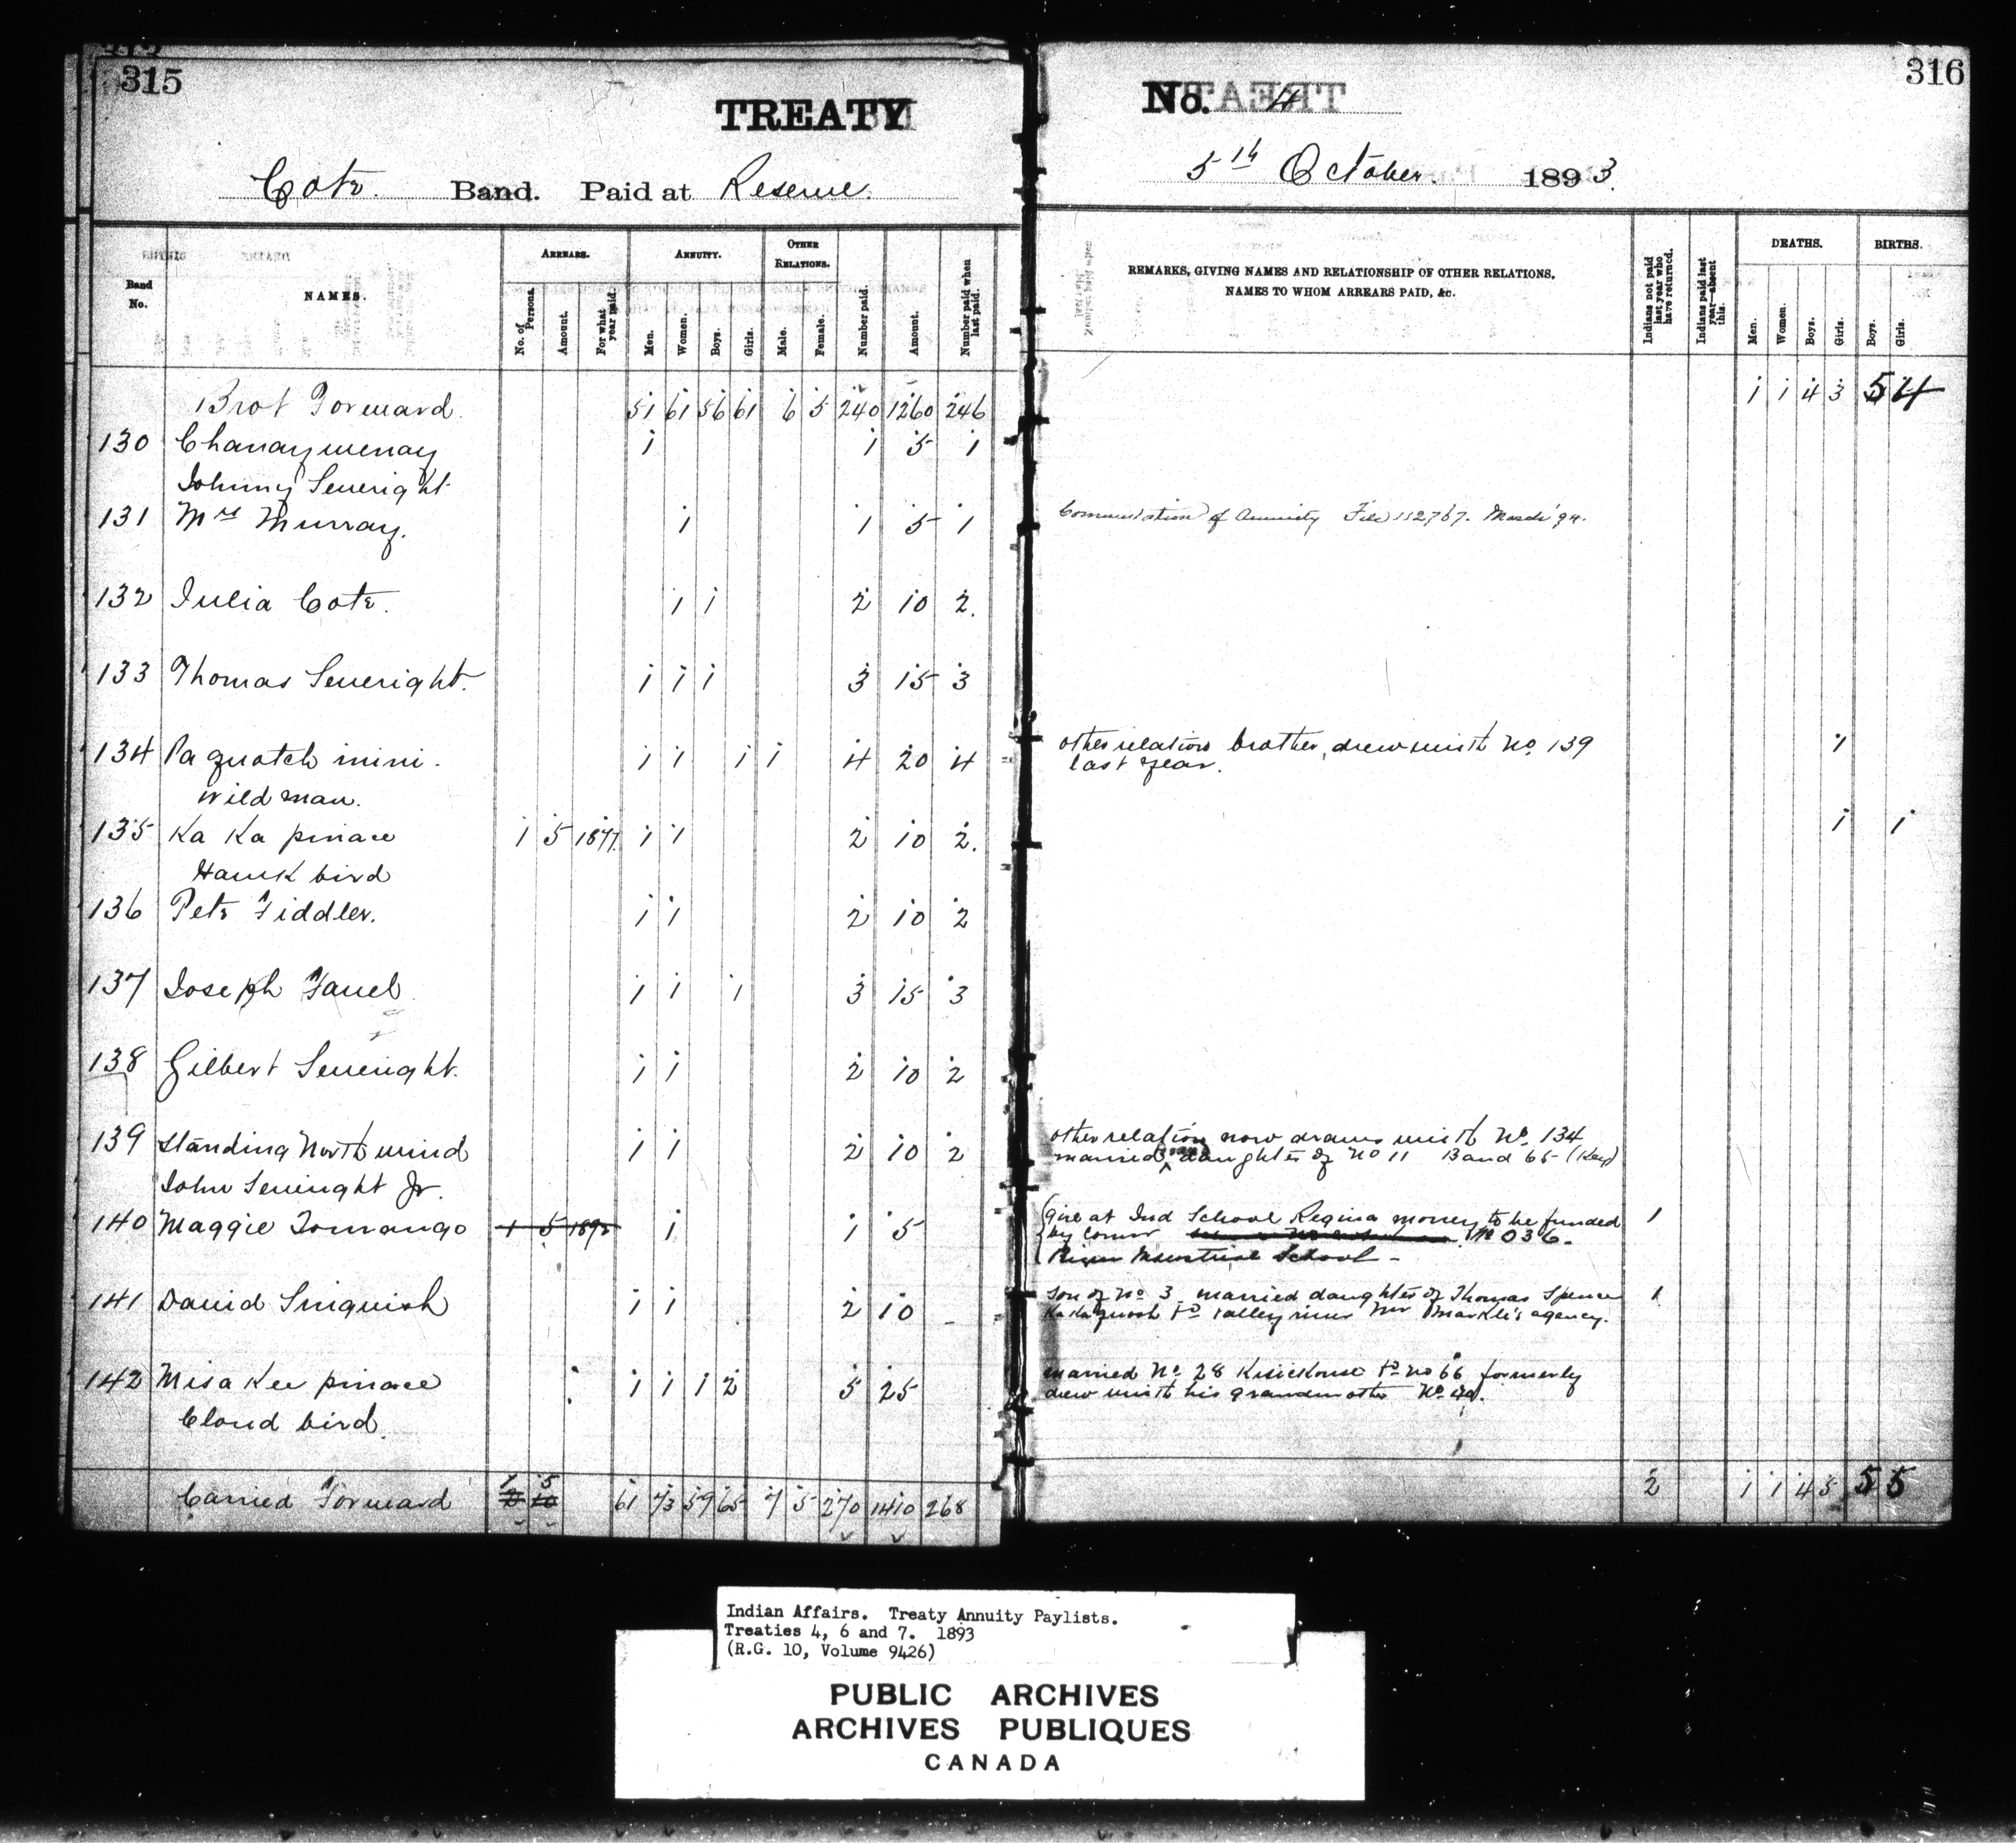 315
TREATY
Cote. Band. Paid at Reserve.
No. 4
316
5th October 1893.
Band No.
NAMES.
ARREARS.
No. of Persons.
Amount.
For what year paid.
ANNUITY.
Men.
Women.
Boys.
Girls.
OTHER RELATIONS.
Male.
Female.
Number paid.
Amount.
Number paid when last paid.
REMARKS, GIVING NAMES AND RELATIONSHIP OF OTHER RELATIONS,
NAMES TO WHOM ARREARS PAID, &c.
Indians not paid last year who have returned.
Indians paid last year—absent this.
DEATHS.
Men.
Women.
Boys.
Girls.
BIRTHS.
Boys.
Girls.
Brot Forward. 51 61 56 61 6 5 240 1260 246 1 1 4 3 5 4
130 Chanaywenay 1 1 5 1
Johnny Severight
131 Mrs Murray. 1 1 5 1 Commutation of Annuity File 112767. March '94.
132 Julia Cote. 1 1 2 10 2.
133 Thomas Severight. 1 1 1 3 15 3
134 Pa quatch inini. 1 1 1 1 4 20 4 other relation brother, drew with No 139 1
last year.
Wild man.
135 Ka Ka pinace 1 5 1877 1 1 2 10 2. 1 1
Hawk bird
136 Pete Fiddler. 1 1 2 10 2
137 Joseph Favel 1 1 1 3 15 3
138 Gilbert Severight. 1 1 2 10 2
139 Standing North wind 1 1 2 10 2 other relation now draws with No. 134
married daughter of No 11 Band 65 (Key)
John Severight Jr.
140 Maggie Tomango 1 5 1892 1 1 5 Girl at Ind School Regina money to be funded 1
by Comr No 036.
Industrial School
141 David Sinquish 1 1 2 10 - Son of No 3 married daughter of Thomas Spence 1
Valley river Mr Markle's agency.
142 Misa Kee pinace 1 1 1 2 5 25 married No. 28 Kisickouse Bd no 66 formerly
drew with his grandmother No. 40.
Cloud bird.
Carried Forward 1 5 61 73 59 65 7 5 270 1410 268 2 1 1 4 5 5 5
Indian Affairs. Treaty Annuity Paylists.
Treaties 4, 6 and 7. 1893
(R.G. 10, Volume 9426)
PUBLIC ARCHIVES
ARCHIVES PUBLIQUES
CANADA